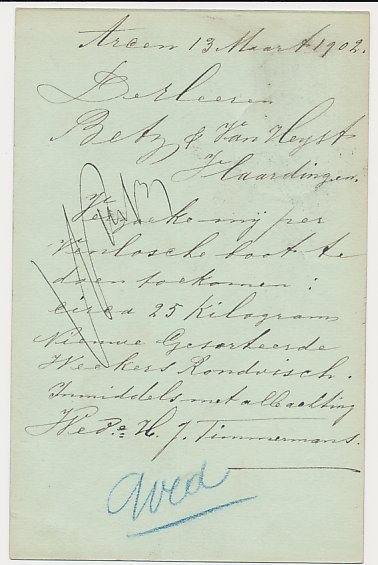 Arcen 13 Maart 1902.
Betz & Van Heyst
Vlaardingen.
Verzoeke mij per
Venlosche boot te
doen toekomen:
circa 25 Kilogram
Nieuwe Gesorteerde
Weekers Rondvisch.
Inmiddels met alle achting
Wede. H. J. Timmermans.